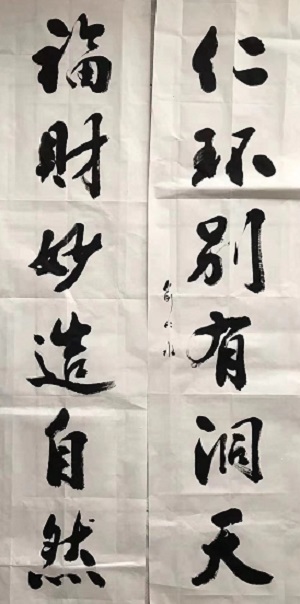 仁环别有洞天
福财妙造自然